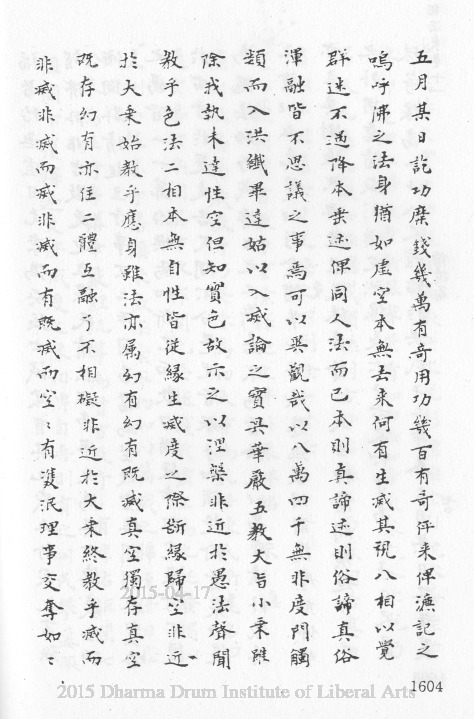 五月某日訖功糜錢幾萬有奇用功幾百有奇伻来俾濂記之
嗚呼佛之法身猶如虚空本無去来何有生滅其現八相以覺
群迷不過降本垂迹俾同人法而已本則真諦迹則俗諦真俗
渾融皆不思議之事焉可以異觀哉以八萬四千無非度門觸
類而入洪纖畢達姑以入滅論之實具華嚴五教大旨小乗雖
除我執未達性空但知實色故示之以涅槃非近於愚法聲聞
教乎色法二相本無自性皆従縁生滅度之際斷縁歸空非近
於大乗始教乎應身雖法亦属幻有幻有既滅真空獨存真空
既存幻有亦住二體互融了不相礙非近於大乗終教乎滅而
非滅非滅而滅非滅而有既滅而空:有雙泯理事交奪如:
2015-04-17
1604
2015 Dharma Drum Institute of Liberal Arts